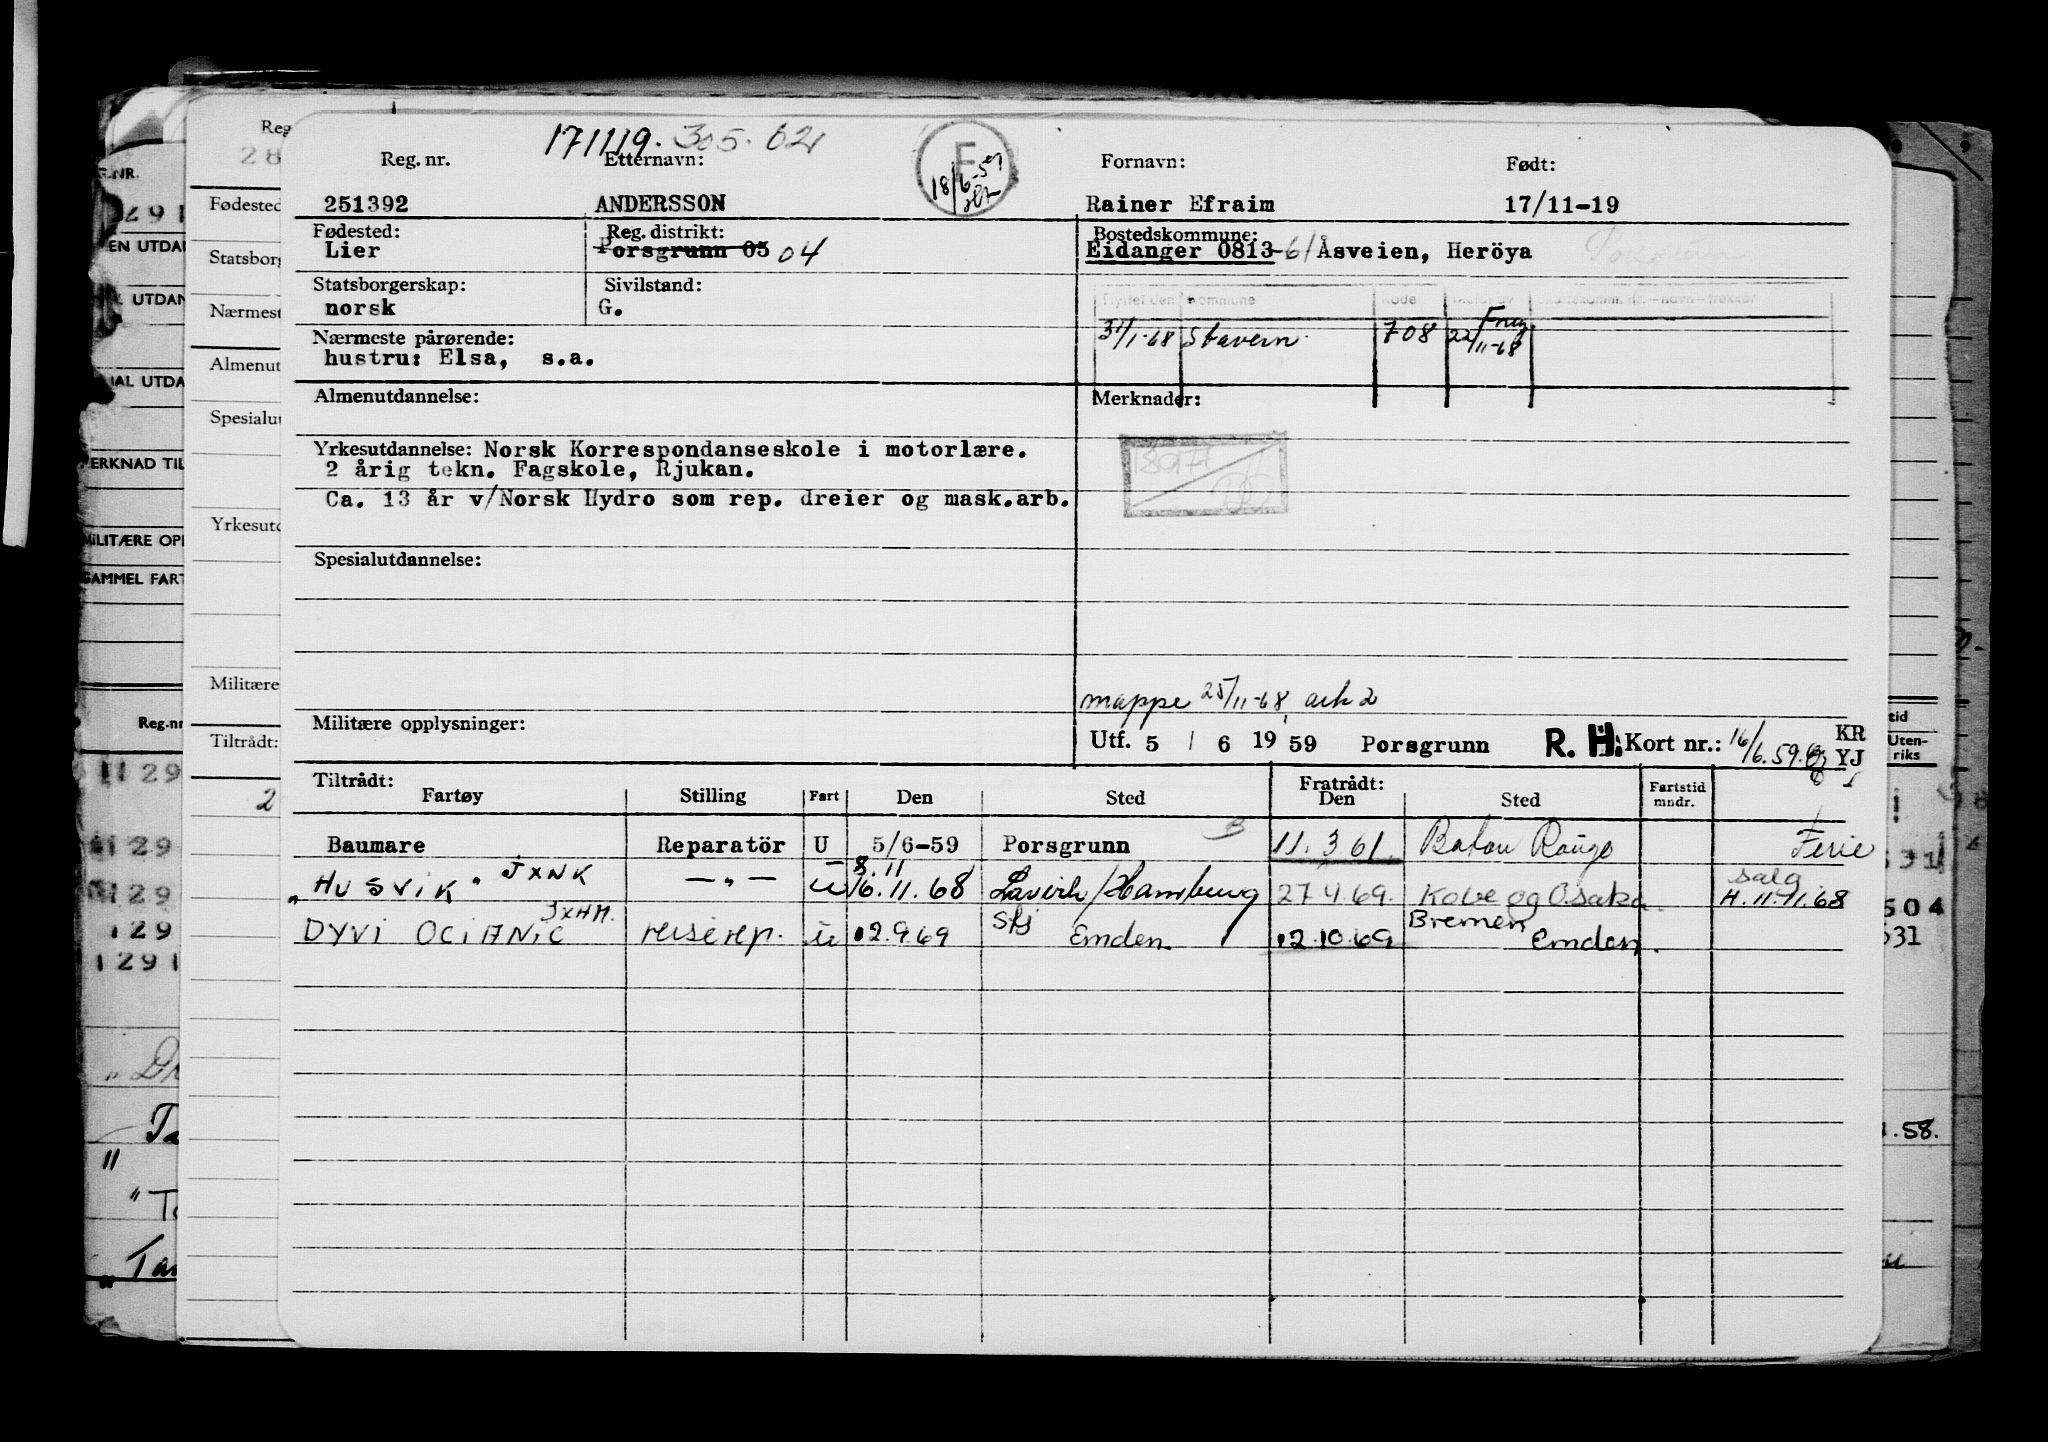 171119. 305. 02
Reg. nr. Etternavn: Fornavn: Født:
F
18/6-59
251392 ANDERSSON Rainer Efraim 17/11-19
Fødested: Reg. distrikt: Bostedskommune:
Lier Porsgrunn 05 04 Eidanger 0813 -61 Åsveien, Heröya
Statsborgerskap: Sivilstand:
norsk G.
Flyttet den Kommune Kode
31/1-68 Stavern. 708 22/11-68
Nærmeste pårørende:
hustru: Elsa, s.a.
Almenutdannelse: Merknader:
Yrkesutdannelse: Norsk Korrespondanseskole i motorlære.
2 årig tekn. Fagskole, Rjukan.
Ca. 13 år v/Norsk Hydro som rep. dreier og mask.arb.
Spesialutdannelse:
mappe 25/11-68, ark 2
Militære opplysninger:
Utf. 5 / 6 19 59 Porsgrunn R. H. Kort nr.: 16/6.59. KR
YJ
Tiltrådt: Fratrådt:
Fartøy Stilling Fart Den Sted Den Sted Fartstid mndr.
Baumare Reparatör U 5/6-59 Porsgrunn 11.3 61. Baton Rouge Ferie
"HUSVIK" JXNK — " — u 8.11 16.11.68 Larvik/Hamburg 27.4.69. Kobe og Osaka. salg
H. 11.11.68
DYVI OCIANIC JXHM. reiserep. u 02.9.69 Sfj Emden 02.10.69 Bremen Emden.
Reg
28
Fødested
Statsborg
Nærmest
Almenut
Spesialut
Yrkesutd
Militære
Tiltrådt:
2
G.NR.
291
EN UTDAN
UTDAN
IAL UTDA
MERKNAD TIL
MILITÆRE OPP
SAMMEL FART
Reg.nr
1129
129
129
129
1291
Ta
"
"Ta
"Tan
tid
Uten-
riks
531
504
531
.58.